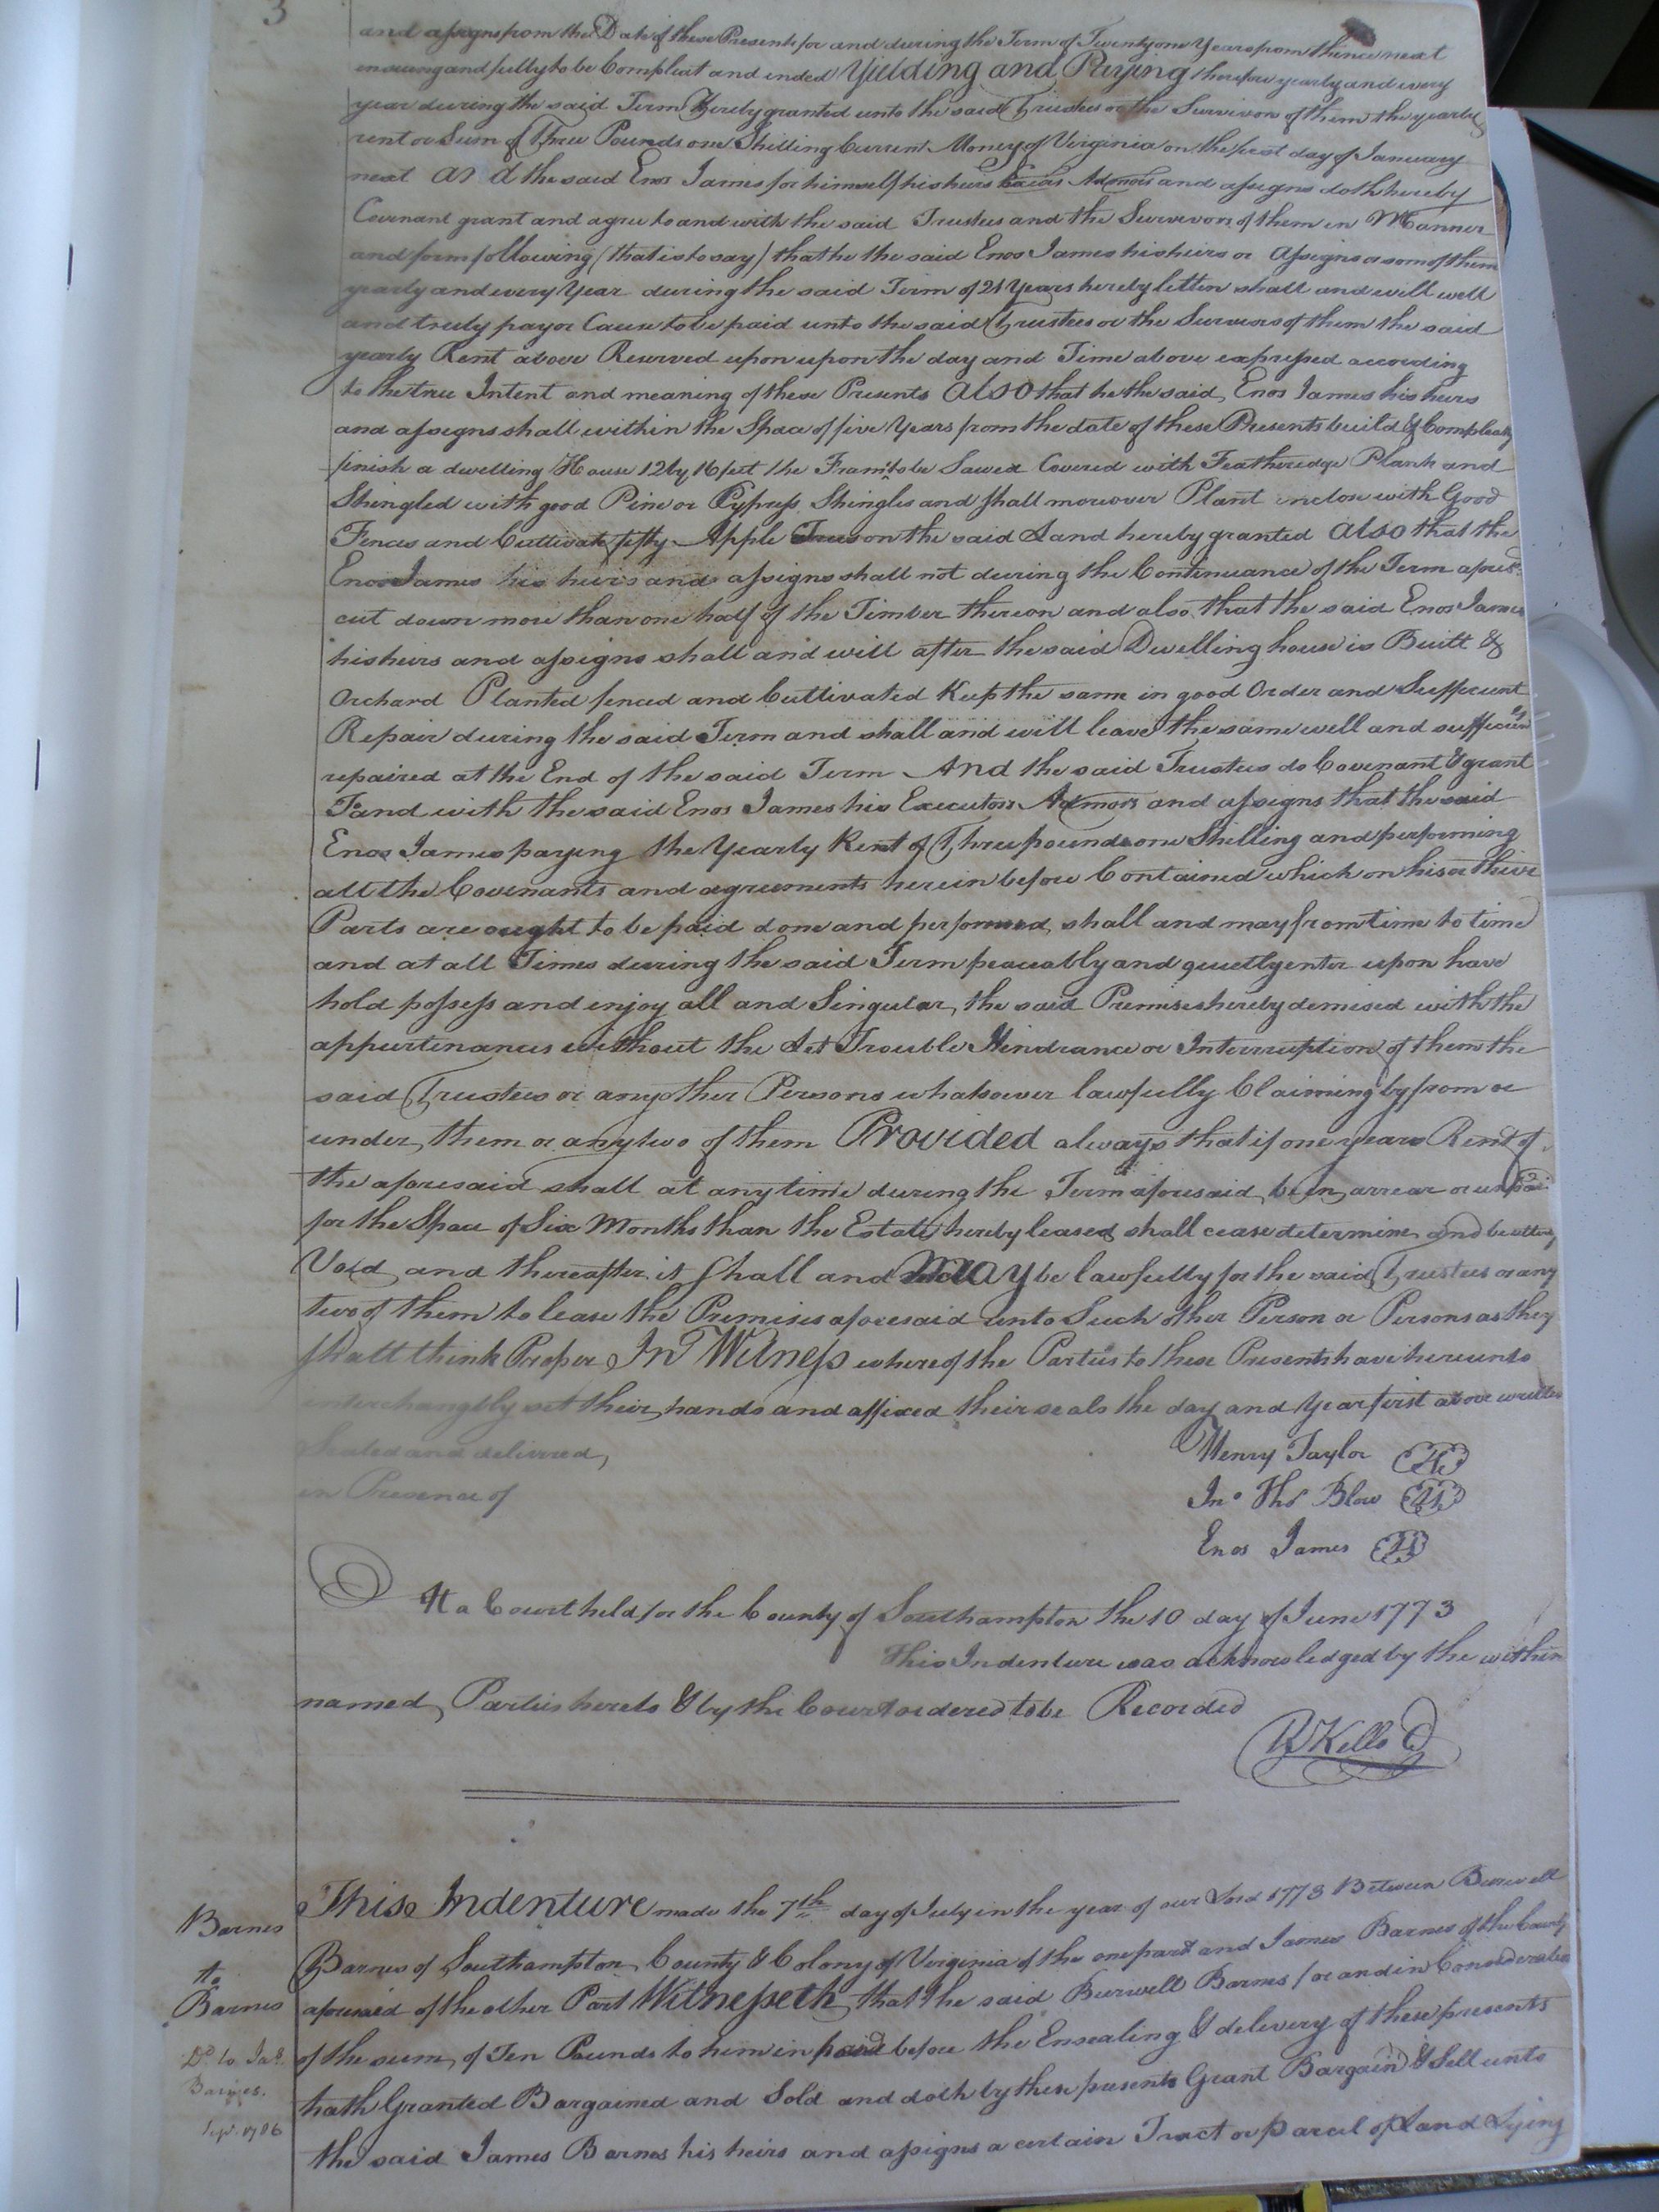 3
and assigns from the Date of these Presents for and during the Term of Twenty one Years from thence next
ensueing and fully to be Compleat and ended Yielding and Paying therefore yearly and every
year during the said Term Hereby granted unto the said Trustees or the Survivors of them the yearly
rent or Sum of Three Pounds one Shilling Current Money of Virginia on the first day of January
next And the said Enos James for himself his heirs Admors and assigns doth hereby
Covenant grant and agree to and with the said Trustees and the Survivors of them in Manner
and form following (that is to say) that he the said Enos James his heirs or Assigns or som of them
yearly and every Year during the said Term of 21 Years hereby letten shall and will well
and truly pay or Cause to be paid unto the said Trustees or the Survivors of them the said
yearly Rent above Reserved upon upon the day and Time above expressed according
to the true Intent and meaning of these Presents also that he the said Enos James his heirs
and assigns shall within the Space of five Years from the date of these Presents build & Compleatly
finish a dwelling House 12 by 16 feet the Frame to be Sawed Covered with Featheredge Plank and
Shingled with good Pine or Cypress Shingles and shall moreover Plant inclose with Good
Fences and Cultivate fifty Apple Trees on the said Land hereby granted also that the
Enos James his heirs and assigns shall not during the Continuance of the Term aforesd.
cut down more than one half of the Timber thereon and also that the said Enos James
his heirs and assigns shall and will after the said Dwelling house is Built &
Orchard Planted fenced and Cultivated Keep the same in good Order and Sufficient
Repair during the said Term and shall and will leave the same well and sufficiently
repaired at the End of the said Term And the said Trustees do Covenant & grant
To and with the said Enos James his Executors Admors and assigns that the said
Enos James paying the Yearly Rent of Three pounds one Shilling and performing
all the Covenants and agreements herein before Contained which on his or their
Parts are ought to be paid done and performed, shall and may from time to time
and at all Times during the said Term peaceably and quietly enter upon have
hold possess and enjoy all and Singular the said Premises hereby demised with the
appurtinances without the Let Trouble Hindrance or Interruption of them the
said Trustees or any other Persons whatsoever lawfully Claiming by from or
under them or any two of them Provided always that if one years Rent of
the aforesaid shall at any time during the Term aforesaid be in arrear or unpaid
for the Space of Six Months than the Estate hereby leased shall cease determine and be utterly
Void and thereafter it shall and may be lawfully for the said Trustees or any
two of them to lease the Premises aforesaid unto Such other Person or Persons as they
shall think Proper In Witness whereof the Parties to these Presents have hereunto
interchangbly set their hands and affixed their seals the day and Year first above written
Sealed and delivered
in Presence of
Henry Taylor LS
Jno. Thos Blow LS
Enos James LS
At a Court held for the County of Southampton the 10 day of June 1773
This Indenture was acknowledged by the within
named Parties hereto & by the Court ordered to be Recorded
R Kello C
Barnes
to
Barnes
Do. to Jas.
Barnes.
Sepr. 1786
This Indenture made the 7th day of July in the year of our Lord 1773 Between Burwell
Barnes of Southampton County & Colony of Virginia of the one part and James Barnes of the County
aforesaid of the other Part Witnesseth that the said Burwell Barnes for and in Consideration
of the sum of Ten Pounds to him in paid before the Ensealing & delivery of these presents
hath Granted Bargained and Sold and doth by these presents Grant Bargain & Sell unto
the said James Barnes his heirs and assigns a certain Tract or parcel of Land Lying